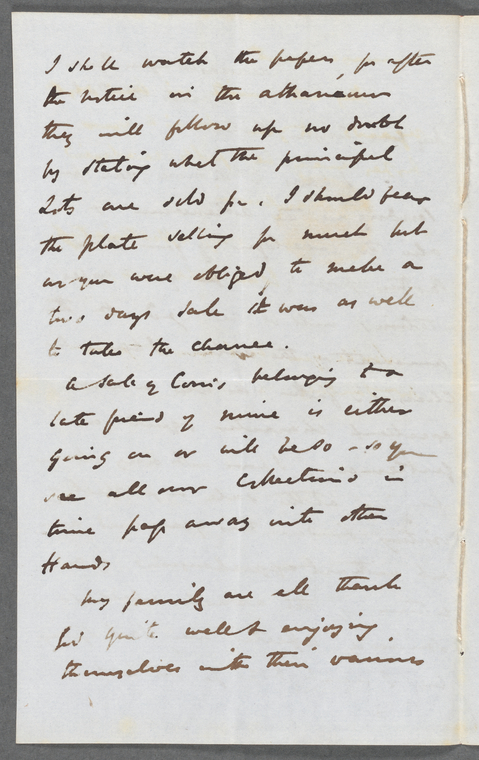 I shall watch the papers, for after
the notice in the athaneum
they will follow up no doubt
by stating what the principal
Lots are sold for. I should fear
the plate selling for much but
as you were obliged to make a
two days sale it was as well
to take the chance.
A Sale of Coins belonging to a
late friend of mine is either
going on or will be so - so you
see all our Collections in
time pass away into other
Hands
My family are all thank
God quite well & enjoying
themselves with their various